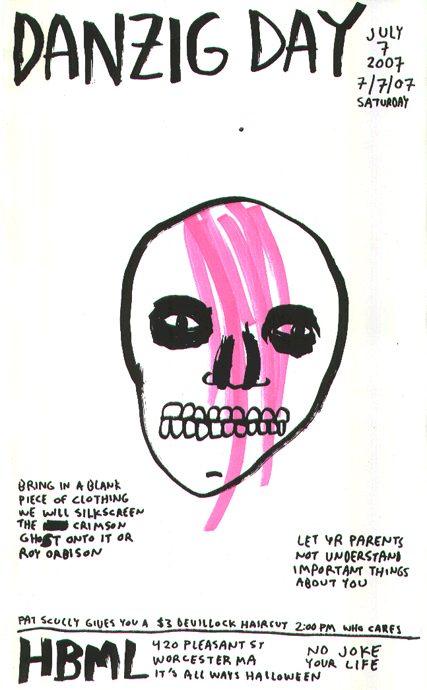 DANZIG DAY
JULY
7
2007
7/7/07
SATURDAY
BRING IN A BLANK
PIECE OF CLOTHING
WE WILL SILKSCREEN
THE CRIMSON
GHOST ONTO IT OR
ROY ORBISON
LET YR PARENTS
NOT UNDERSTAND
IMPORTANT THINGS
ABOUT YOU
PAT SCULLY GIVES YOU A $3 DEVILLOCK HAIRCUT 2:00 PM WHO CARES
HBML
420 PLEASANT ST
WORCESTER MA
IT'S ALL WAYS HALLOWEEN
NO JOKE
YOUR LIFE